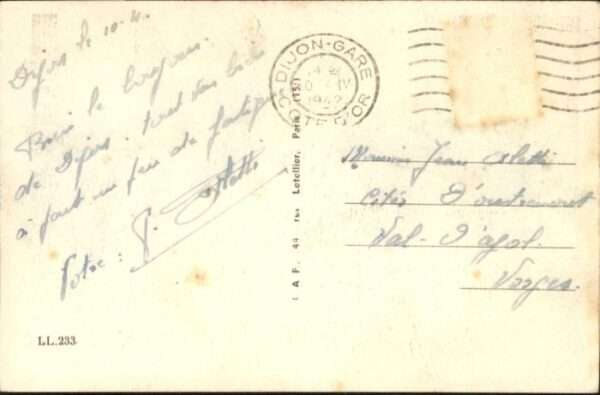 Dijon le 10-4.
Bons le bonjour
de Dijon. tout va bien
à part un peu de fatigue
Votre : J. Aletti
DIJON-GARE
10 IV
1942
COTE D'OR
I A P. 44 rue Letellier, Paris (15e)
Monsieur Jean Aletti
Cités D'outremont
Val-D'ajol.
Vosges
LL.233